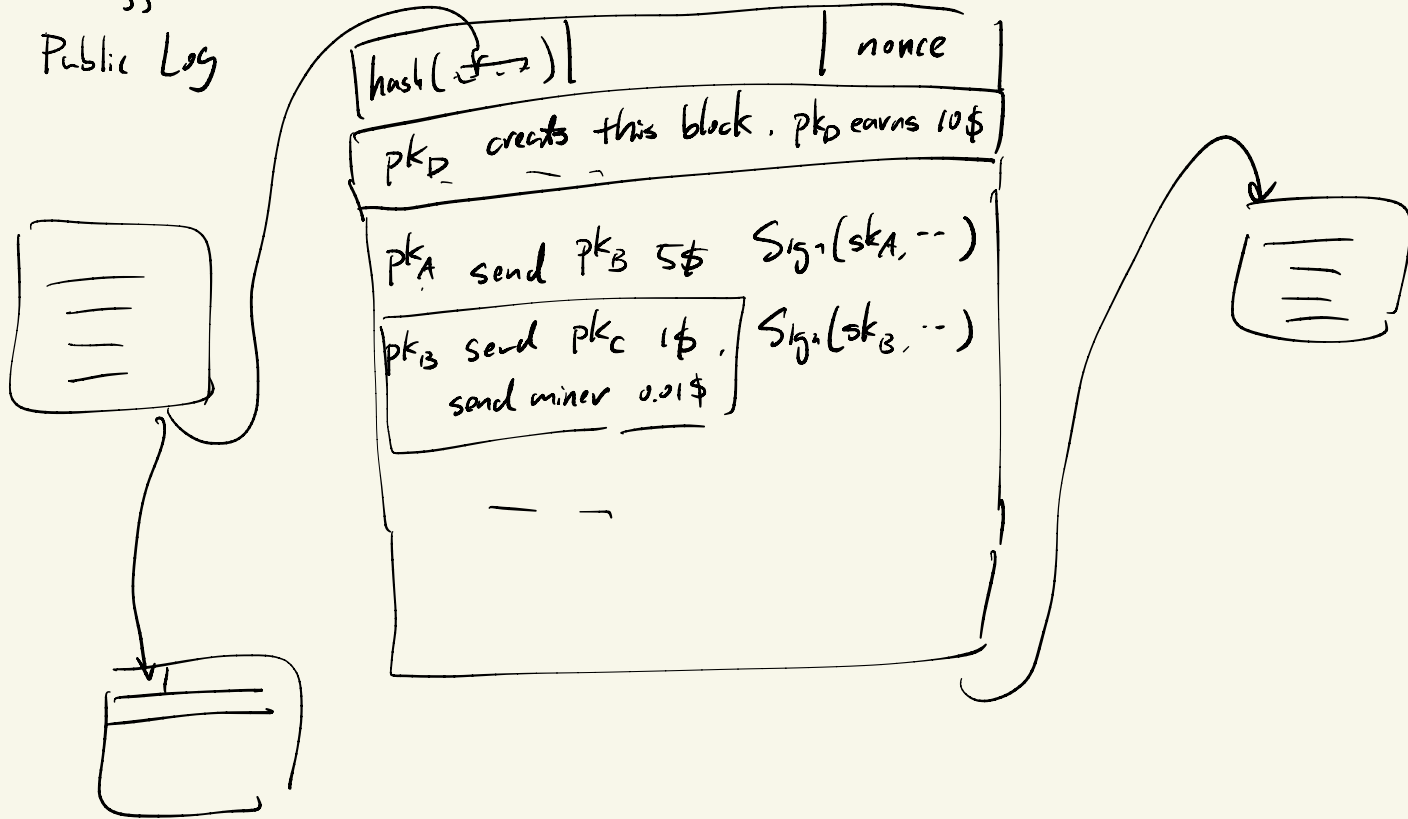 Public Log
hash( ) nonce
pk_D creates this block. pk_D earns 10$
pk_A send pk_B 5$ Sign(sk_A, --)
pk_B send pk_C 1$. Sign(sk_B, --)
send miner 0.01$